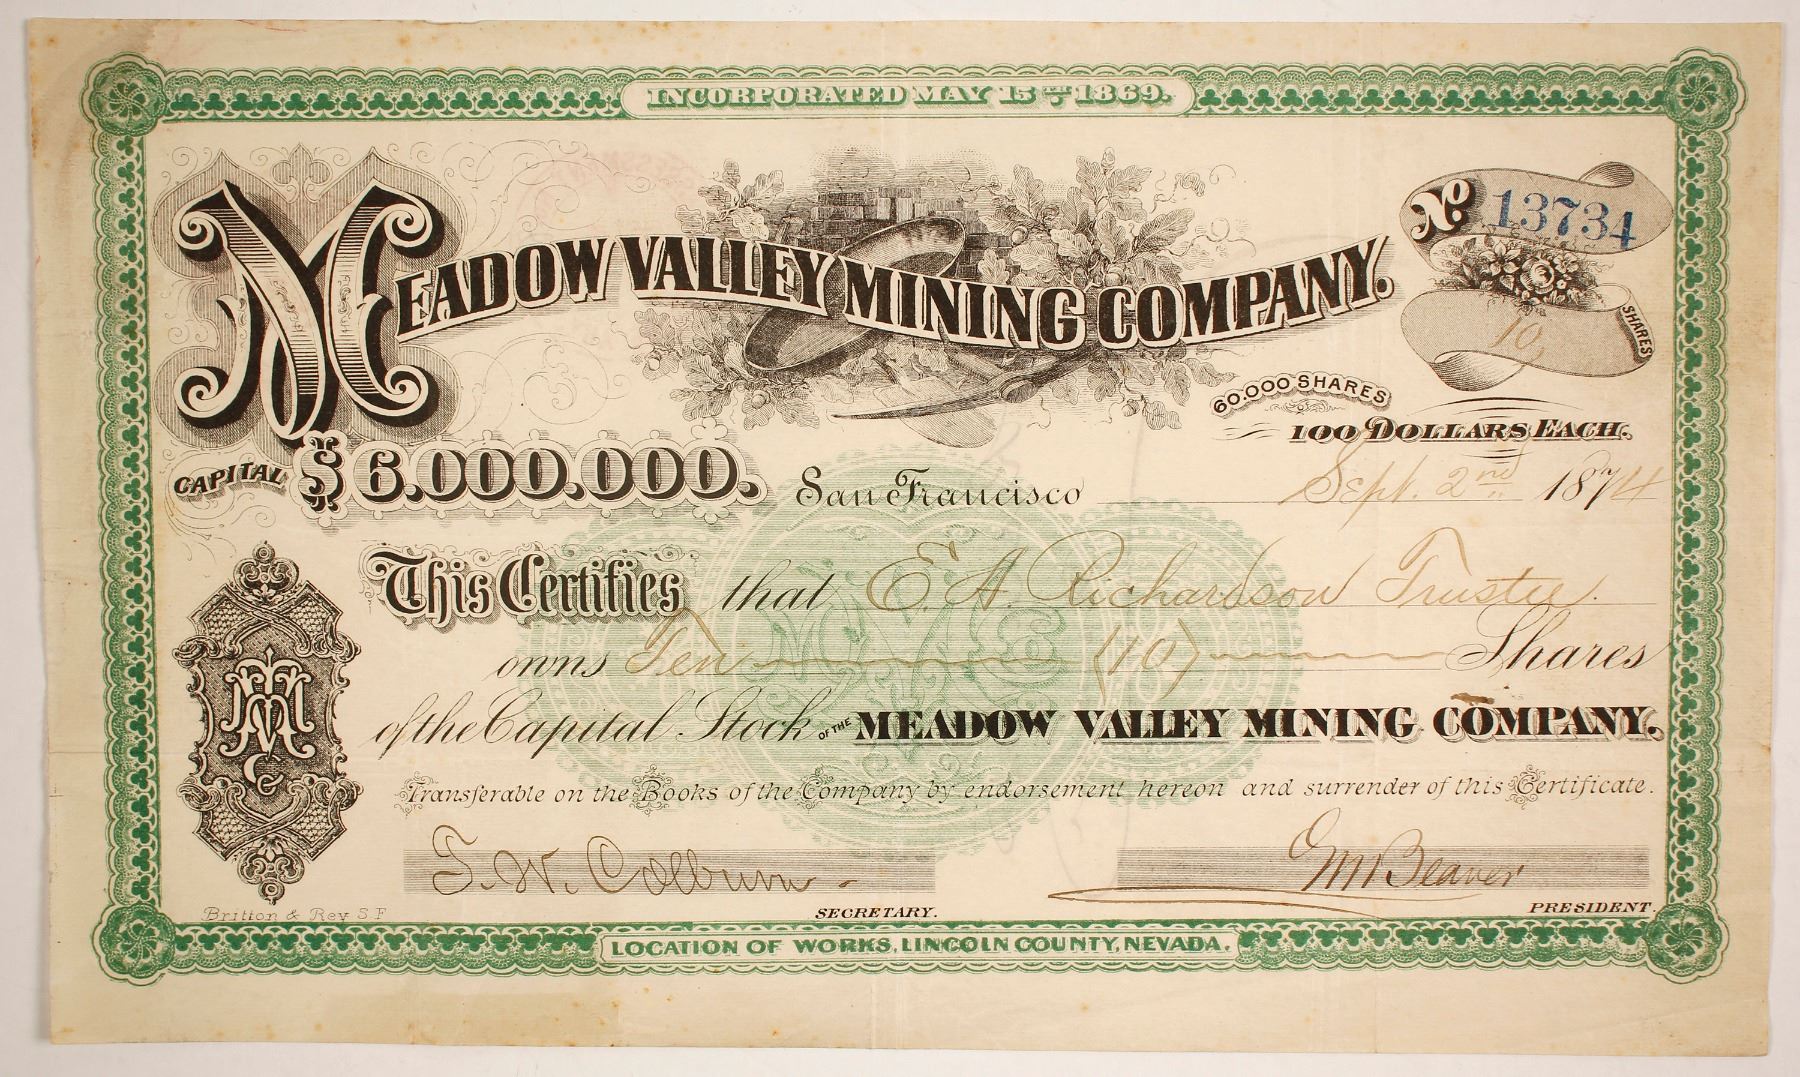 INCORPORATED MAY 15TH 1869.
MEADOW VALLEY MINING COMPANY.
No. 13734
10 SHARES
60.000 SHARES
100 DOLLARS EACH.
CAPITAL $6.000.000.
San Francisco Sept. 2nd 1874
This Certifies that E A Richardson Trustee
owns Ten (10) Shares
of the Capital Stock OF THE MEADOW VALLEY MINING COMPANY.
Transferable on the Books of the Company by endorsement hereon and surrender of this Certificate.
MVMC
T. W. Colburn
SECRETARY.
Beaver
PRESIDENT.
Britton & Rey S.F
LOCATION OF WORKS, LINCOLN COUNTY, NEVADA.